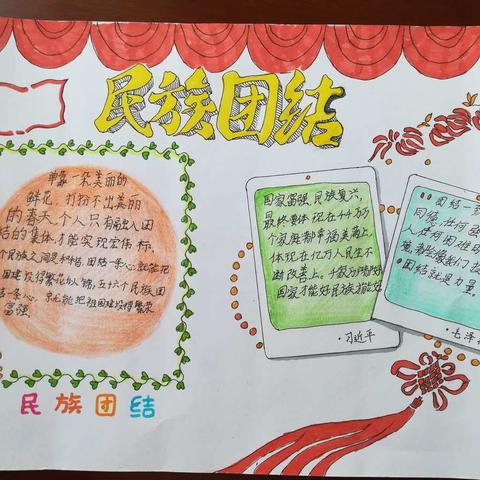 民族团结
单靠一朵美丽的
鲜花，打扮不出美丽
的春天，个人只有融入团
结的集体，才能实现宏伟
个民族之间是和谐，团结一条心
国建设得繁花似锦，五十六个民族团
结一条心，就能把祖国建设得繁荣
富强
民族团结
国家富强，民族复兴，
最终要体现在千千万万
个家庭都幸福美满上，
体现在亿万人民生不
断改善上，千家万
国家才能好民族才能好
·习近平
团结一
同络，任何敌
人任何困难
团结就是力量
·毛泽